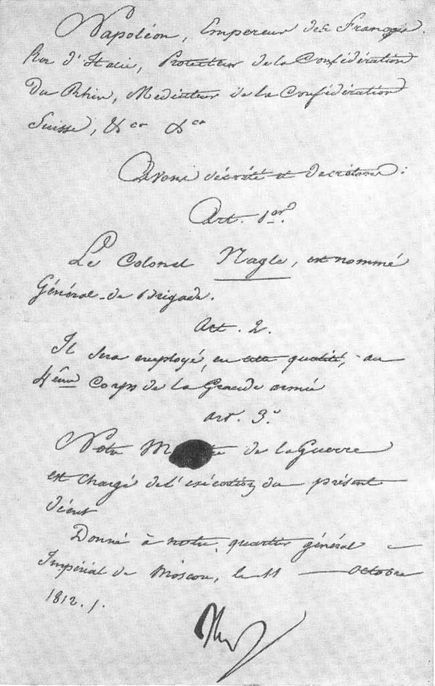 Napoléon, Empereur des Français.
Roi d'Italie, Protecteur de la Confédération
Du Rhin, Médiateur de la Confédération
Suisse, &ca &ca
Avons décrété et décrétons :
Art. 1er.
Le Colonel Nagle, est nommé
Général de Brigade.
Art. 2.
Il sera employé, en cette qualité, au
4ème Corps de la Grande armée
art. 3.
Notre de la Guerre
est chargé de l'exécution du présent
décret
Donné à notre quartier général
Impérial de Moscou, le 11 octobre
1812.